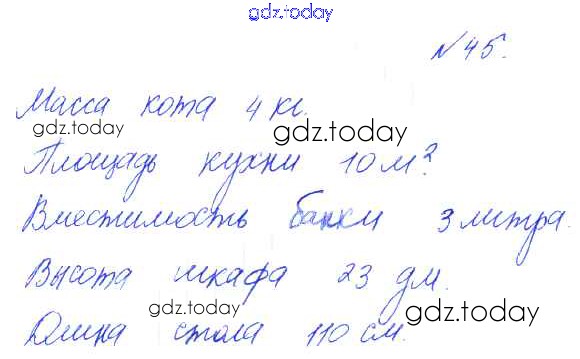 gdz.today
№45.
Масса кота 4 кг.
gdz.today
gdz.today
Площадь кухни 10 м².
Вместимость банки 3 литра.
Высота шкафа 23 дм.
gdz.today
gdz.today
Длина стола 110 см.